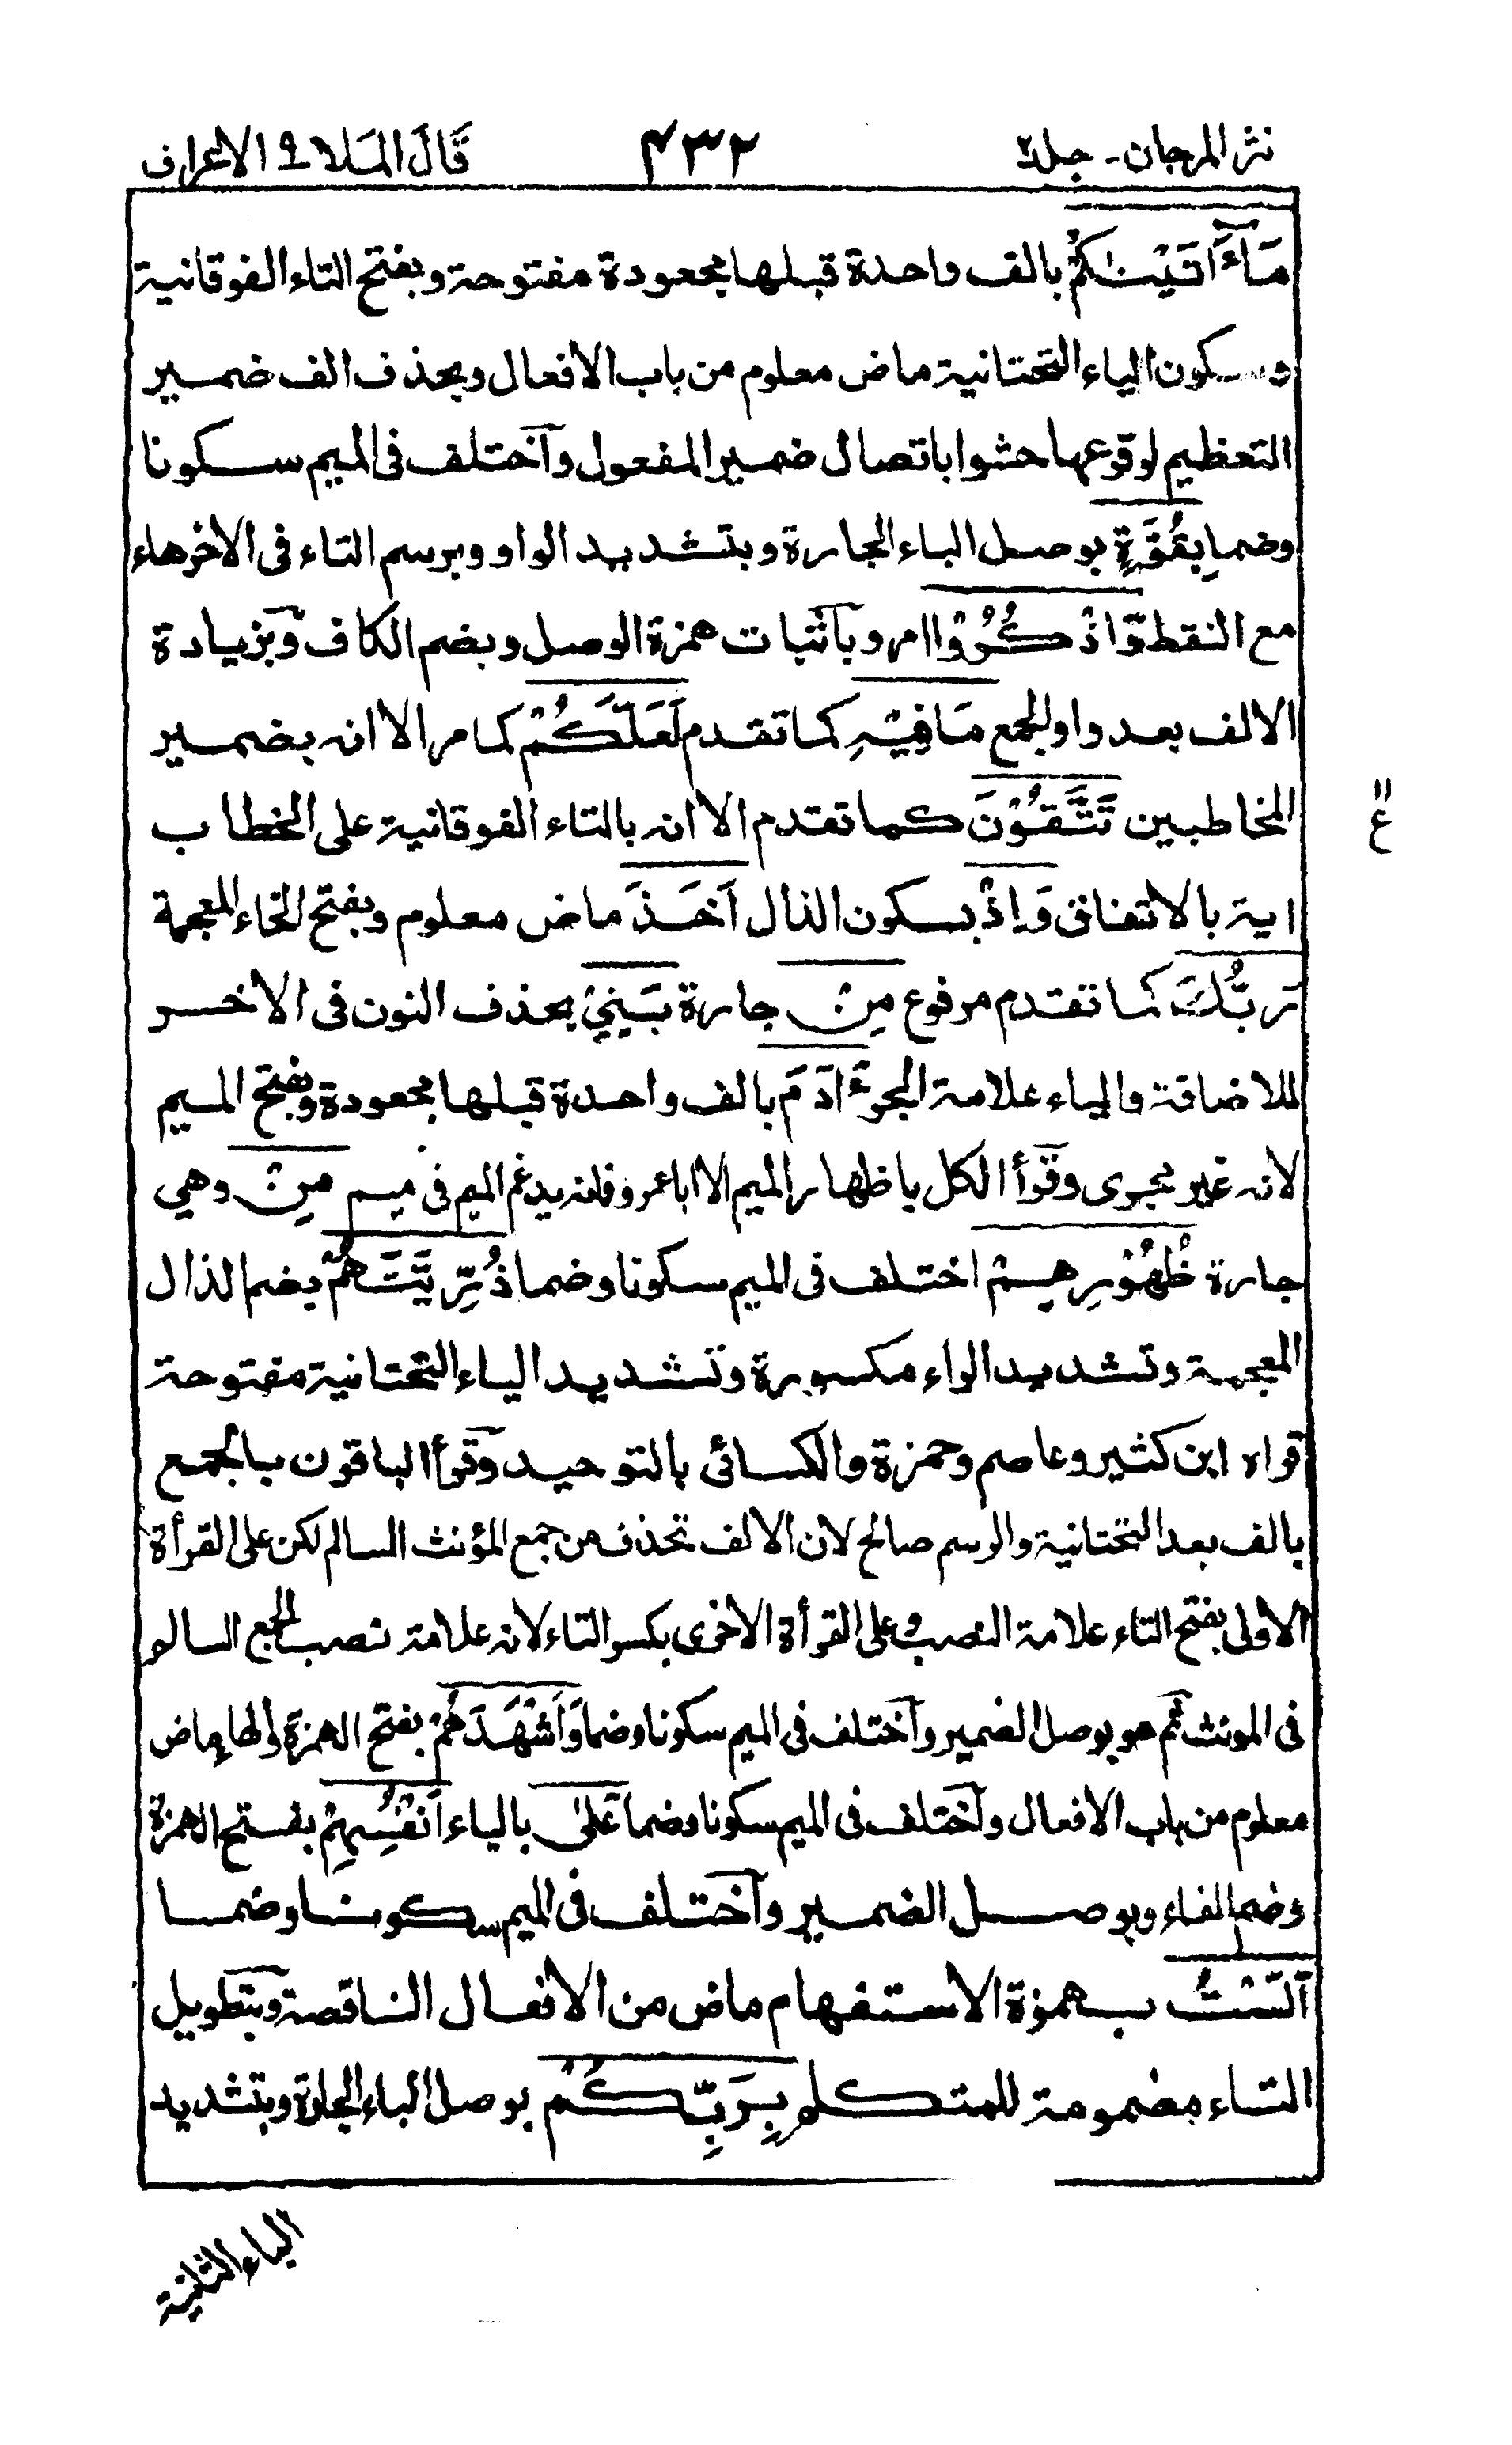 نثر المرجان - جلد٢ ٤٣٢ قَالَ المَلا ٩ الاعراف
مَآءَاتَيْنٰكُمْ بالف واحدة قبلها مجعودة مفتوحة و بفتح التاء الفوقانية
وسكون الياء التحتانية ماض معلوم من باب الافعال و بحذف الف ضمير
التعظيم لوقوعها حشوا باتصال ضمير المفعول وآختلف فى الميم سكونا
وضما بِقُوَّةٍ بوصل الباء الجارة و بتشديد الواو و برسم التاء فى الاخر هاء
مع النقط وَّاذْكُرُوْا امر و بآثبات همزة الوصل و بضم الكاف وبزيادة
الالف بعد واو الجمع مَافِيْهِ كما تقدم لَعَلَّكُمْ كما مر الا انه بضمير
المخاطبين تَتَّقُوْنَ كما تقدم الا انه بالتاء الفوقانية على الخطاب
اية بالاتفاق وَاِذْ بسكون الذال اَخَذَ ماض معلوم و بفتح الخاء المعجمة
رَبُّكَ كما تقدم مرفوع مِنْ جارة بَنِيْ بحذف النون فى الاخر
للاضافة والياء علامة الجر ءَادَمَ بالف واحدة قبلها مجعودة وبفتح الميم
لانه غير مجرى وقرأ الكل باظهار الميم الا ابا عمرو فانه يدغم الميم فى ميم مِنْ وهي
جارة ظُهُوْرِهِمْ اختلف فى الميم سكونا وضما ذُرِّيَّتَهُمْ بضم الذال
المعجمة وتشديد الراء مكسورة وتشديد الياء التحتانية مفتوحة
قراه ابن كثير وعاصم وحمزة والكسائى بالتوحيد وقرأ الباقون بالجمع
بالف بعد التحتانية والرسم صالح لان الالف تحذف من جمع المؤنث السالم لكن على القرأة
الاولى بفتح التاء علامة النصب و على القرأة الاخرى بكسر التاء لانه علامة نصب الجمع السالم
فى المونث ثم هو بوصل الضمير وآختلف فى الميم سكونا وضما وَاَشْهَدَهُمْ بفتح الهمزة والهاء ماض
معلوم من باب الافعال وآختلف فى الميم سكونا وضما عَلٰى بالياء اَنْفُسِهِمْ بفتح الهمزة
وضم الفاء وبوصل الضمير وآختلف فى الميم سكونا وضما
اَلَسْتُ بهمزة الاستفهام ماض من الافعال الناقصة وبتطويل
التاء مضمومة للمتكلم بِرَبِّكُمْ بوصل الباء الجارة وبتشديد
الباء الثانية
ع